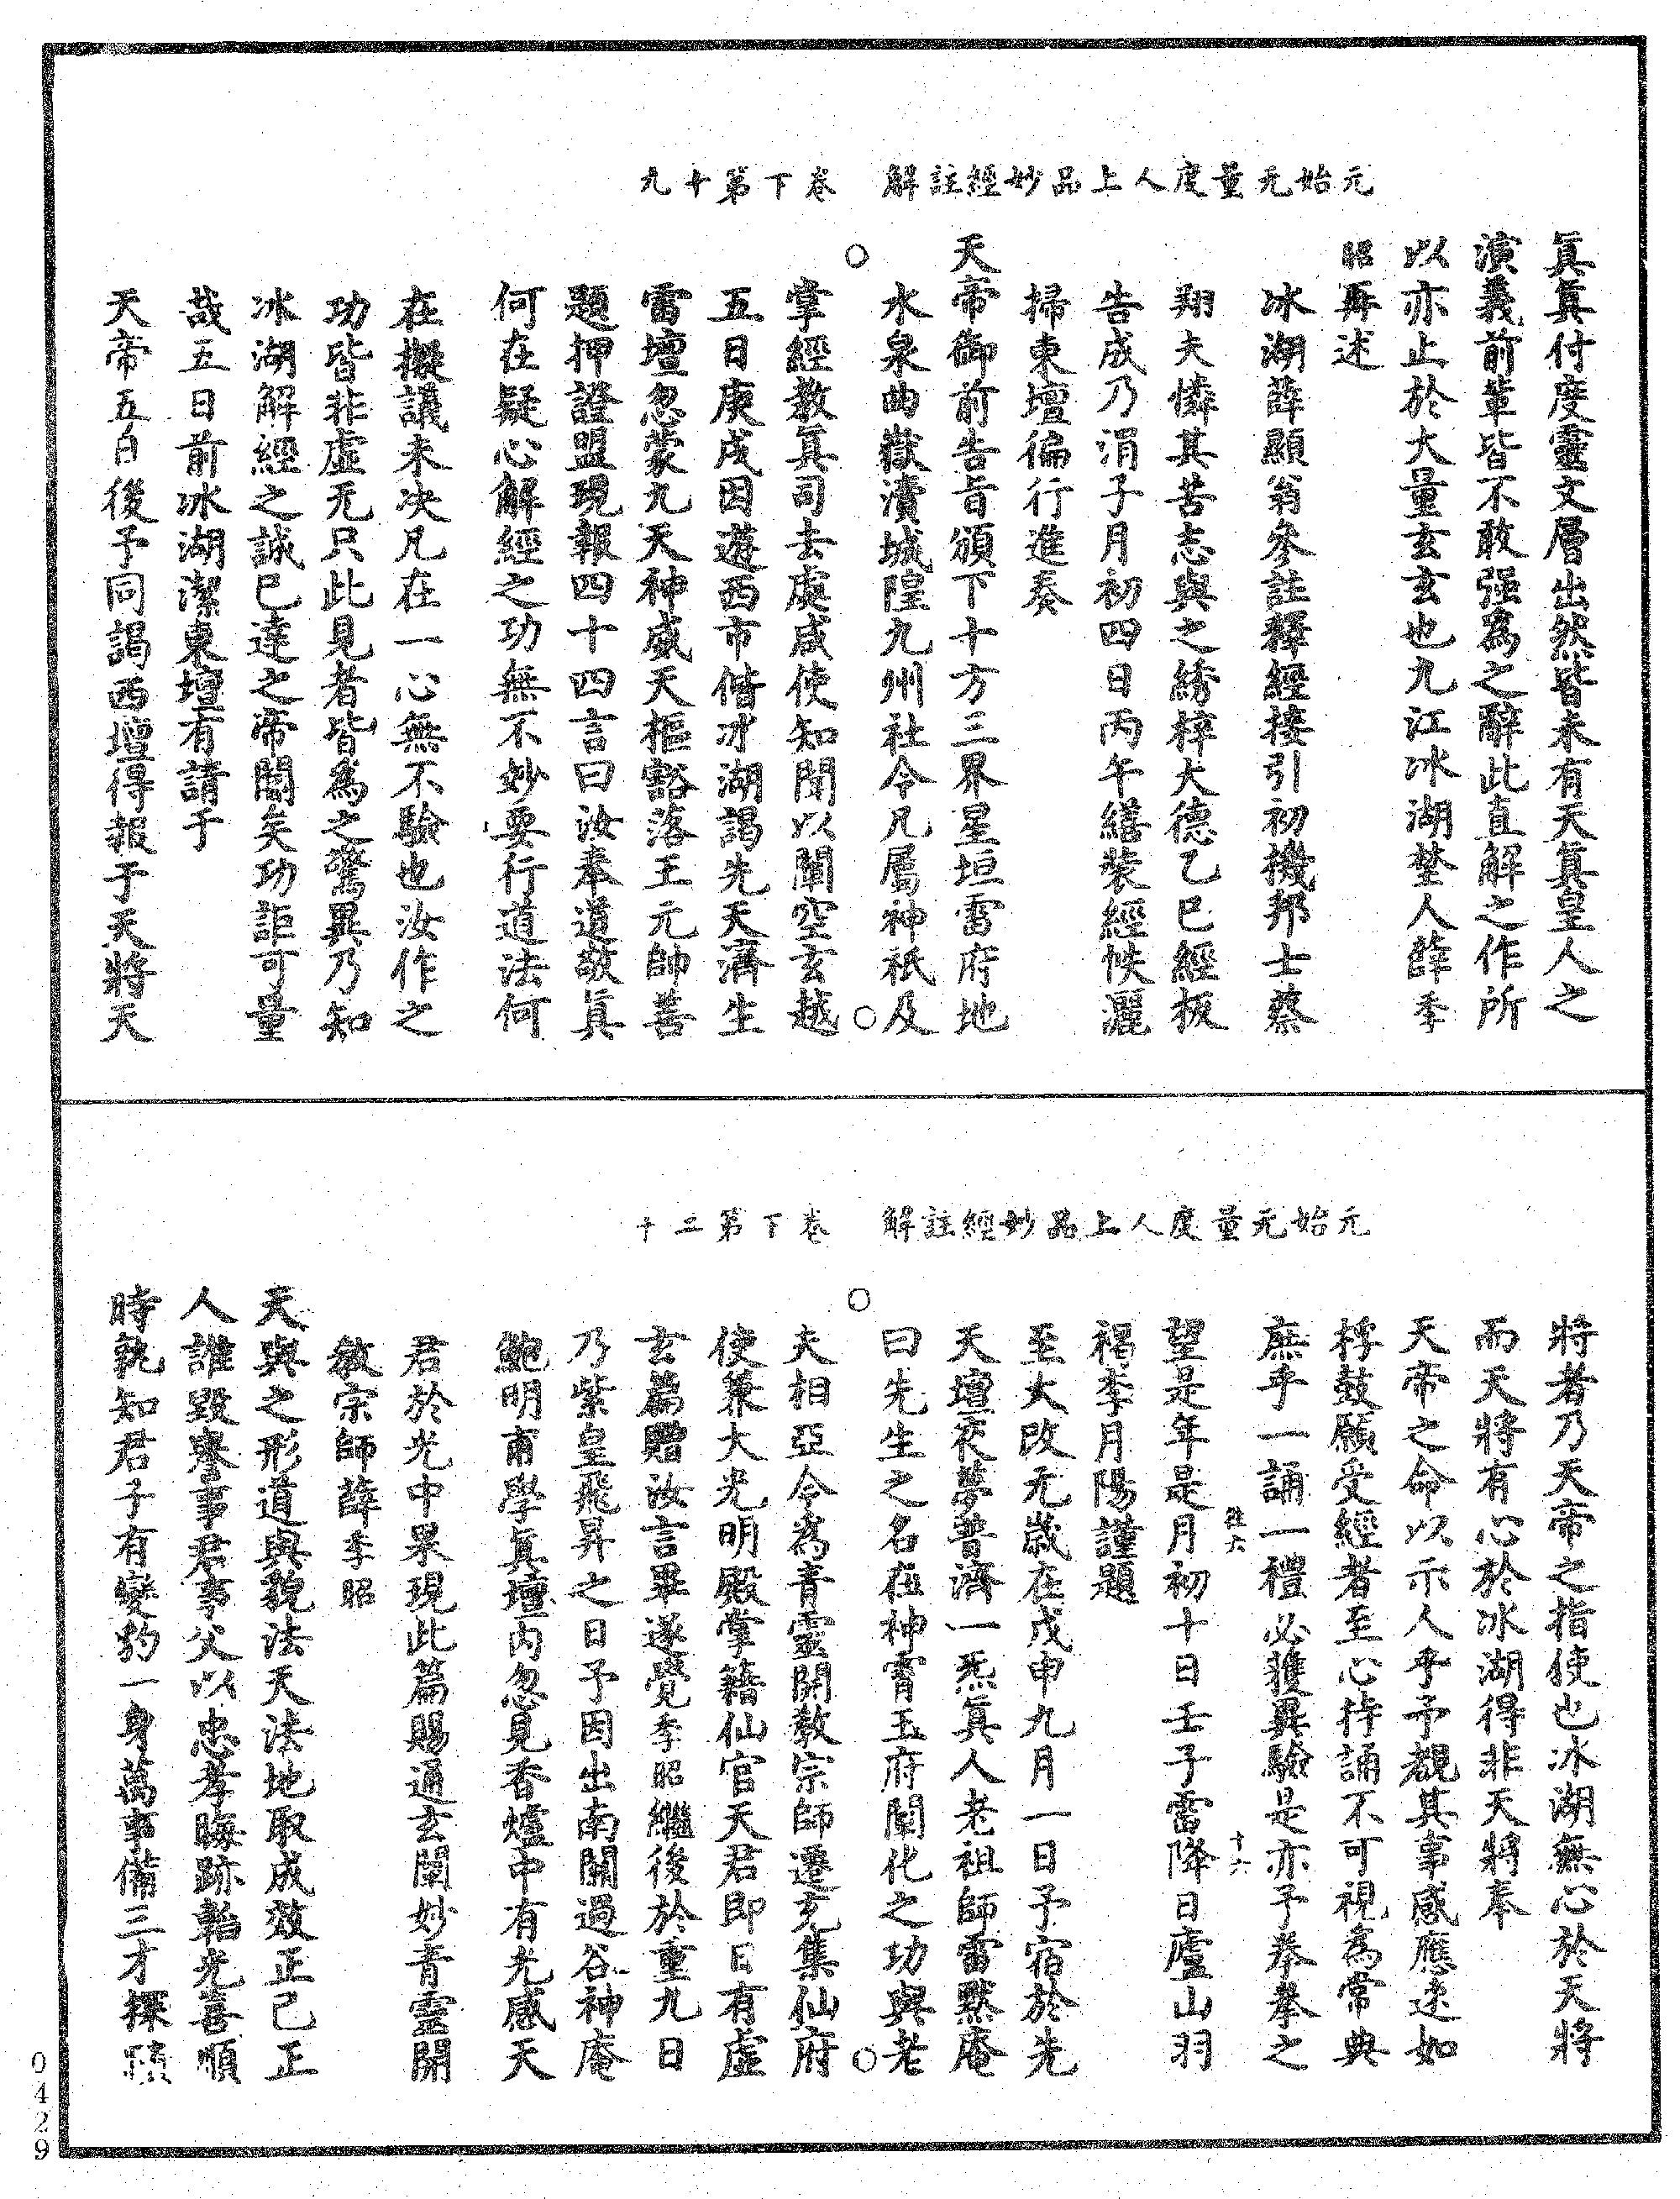 元始无量度人上品妙經註解　卷下第十九
眞眞付度靈文層出然皆未有天眞皇人之
演義前輩皆不敢强爲之辭此直解之作所
以亦止於大量玄玄也九江冰湖埜人薛季
昭再述
冰湖薛顯翁參註釋經接引初機邦士蔡
翔夫憐其苦志與之綉梓大德乙巳經板
告成乃涓子月初四日丙午繕裝經帙灑
掃東壇徧行進奏
天帝御前告旨頒下十方三界星垣雷府地
水泉曲嶽瀆城隍九州社令凡屬神祇及
掌經教眞司去處咸使知聞以闡空玄越
五日庚戌因遊西市偕才湖謁先天濟生
雷壇忽蒙九天神威天樞豁落王元帥善
題押證盟現報四十四言曰汝奉道敬眞
何在疑心解經之功無不妙要行道法何
在擬議未決凡在一心無不驗也汝作之
功皆非虛无只此見者皆爲之驚異乃知
冰湖解經之誠巳達之帝聞矣功詎可量
哉五日前冰湖潔東壇有請于
天帝五日後予同謁西壇得報于天將天
元始无量度人上品妙經註解　卷下第二十
將者乃天帝之指使也冰湖無心於天將
而天將有心於冰湖得非天將奉
天帝之命以示人乎予覩其事感應速如
桴鼓願受經者至心持誦不可視爲常典
庶乎一誦一禮必獲異驗是亦予拳拳之
望是年是月初十日壬子雷降日廬山羽
褐李月陽謹題
至大改元歲在戊申九月一日予宿於先
天壇夜夢普濟一炁眞人老祖師雷黙庵
曰先生之名在神霄玉府闡化之功與老
夫相亞今爲青靈開教宗師遷充集仙府
使兼大光明殿掌籍仙官天君即日有虛
玄篇贈汝言畢遂覺季昭繼後於重九日
乃紫皇飛昇之日予因出南關過谷神庵
鮑明甫學眞壇內忽見香爐中有光感天
君於光中果現此篇賜通玄闡妙青靈開
教宗師薛季昭
天與之形道與貌法天法地取成效正己正
人誰毀譽事君事父以忠孝晦跡韜光喜順
時孰知君子有變豹一身萬事備三才探賾
0429